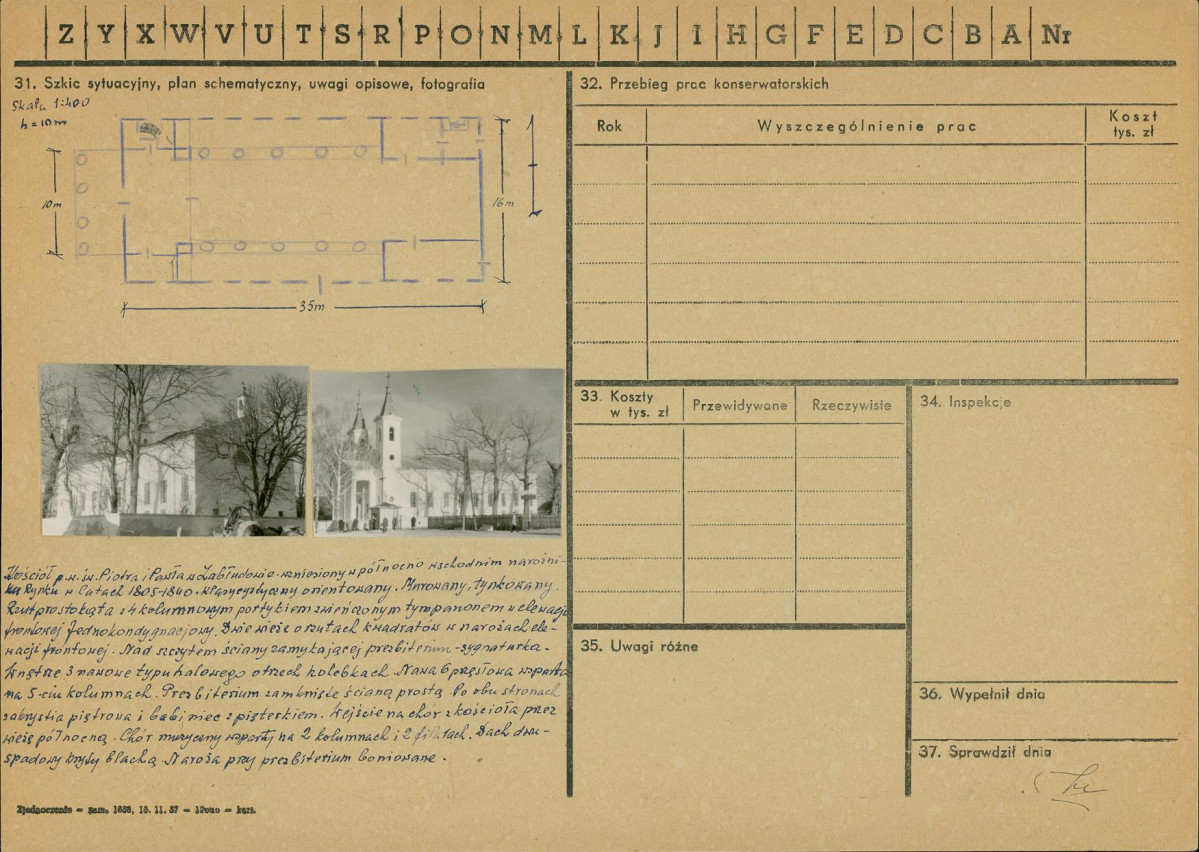 Z Y X W V U T S R P O N M L K J I H G F E D C B A Nr
31. Szkic sytuacyjny, plan schematyczny, uwagi opisowe, fotografia
Skala 1:400
h = 10 m
10m
16m
35m
Kościół p.w. św. Piotra i Pawła w Zabłudowie wzniesiony w północno wschodnim narożni-
ku Rynku w latach 1805-1840. Klasycystyczny orientowany. Murowany, tynkowany.
Rzut prostokąta z 4 kolumnowym portykiem zwieńczonym tympanonem w elewacji
frontowej. Jednokondygnacjowy. Dwie wieże o rzutach kwadratów w narożach ele-
wacji frontowej. Nad szczytem ściany zamykającej prezbiterium - sygnaturka.
Wnętrze 3 nawowe typu halowego o trzech kolebkach. Nawa 6 przęsłowa wsparta
na 5-ciu kolumnach. Prezbiterium zamknięte ścianą prostą. Po obu stronach
zakrystia piętrowa i babiniec z pięterkiem. Wejście na chór z kościoła przez
wieżę północną. Chór muzyczny wsparty na 2 kolumnach i 2 filarach. Dach dwu-
spadowy kryty blachą. Naroża przy prezbiterium boniowane.
Zjednoczenie — zam. 1858, 18. 11. 57 — — kart.
32. Przebieg prac konserwatorskich
Rok
Wyszczególnienie prac
Koszt
tys. zł
33. Koszty
w tys. zł
Przewidywane
Rzeczywiste
34. Inspekcje
35. Uwagi różne
36. Wypełnił dnia
37. Sprawdził dnia